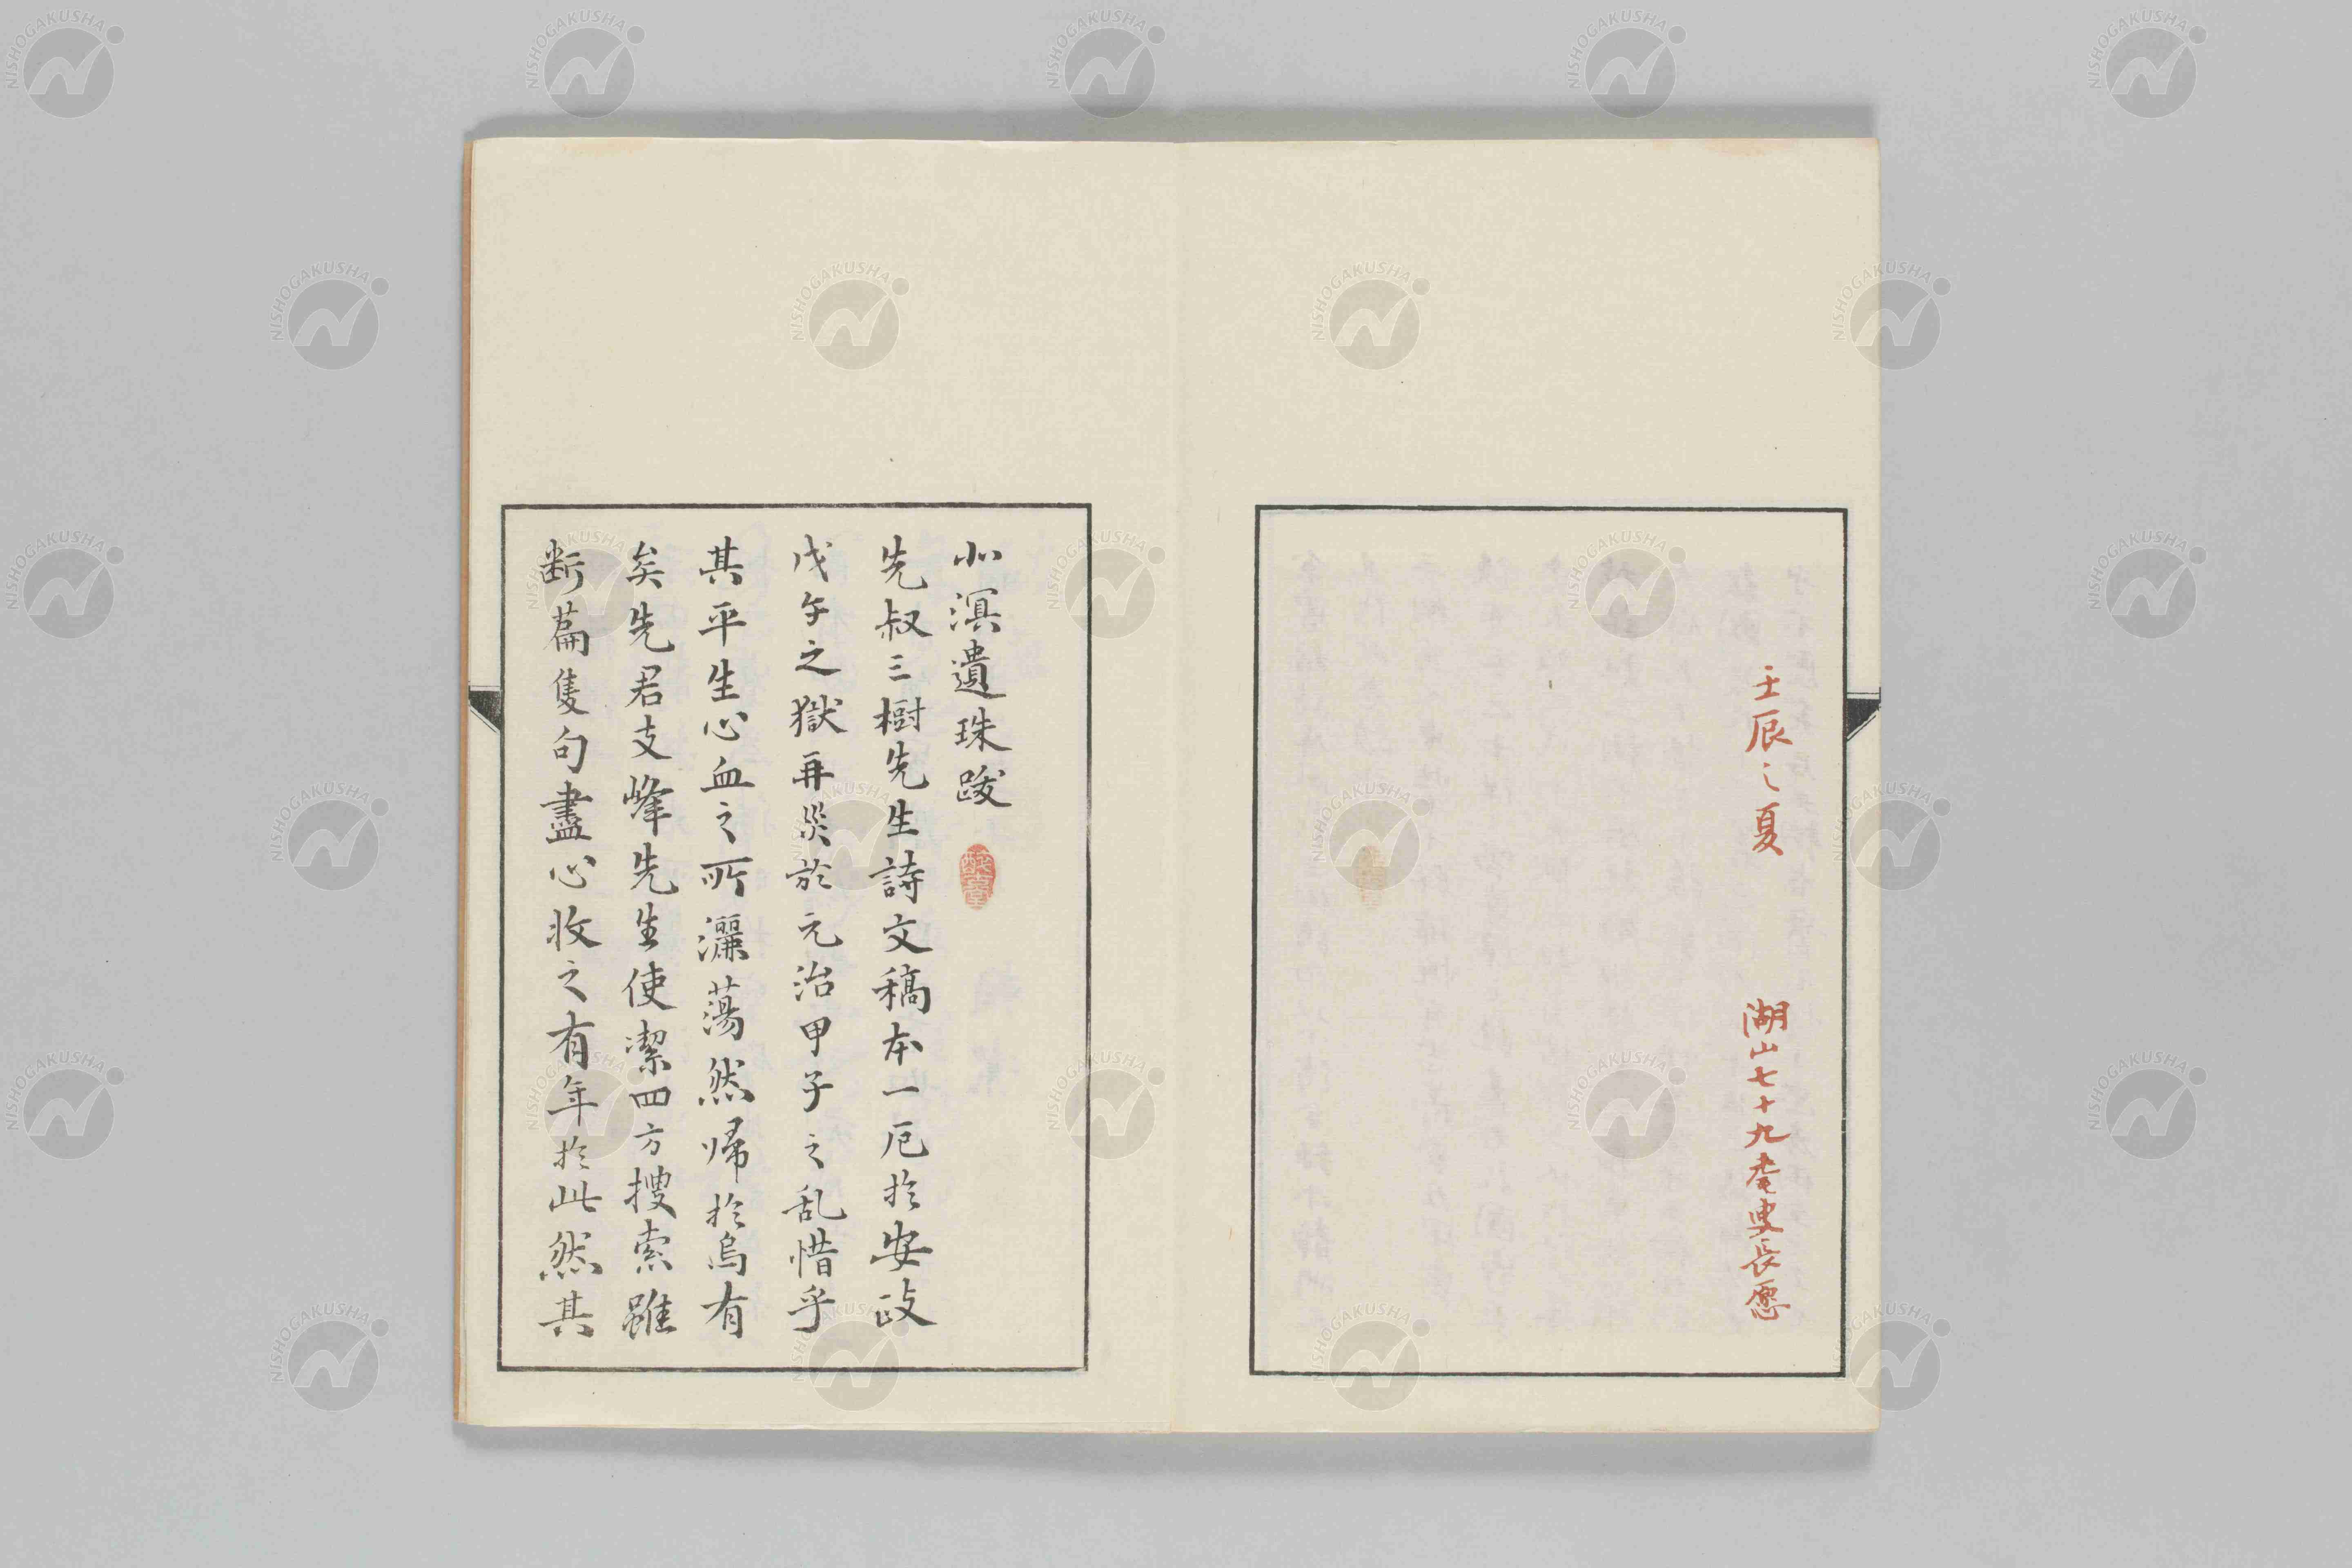 壬辰之夏　湖山七十九耄叟長愿
北溟遺珠跋
先叔三樹先生詩文稿本一厄於安政
戊午之獄再災於元治甲子之乱惜乎
其平生心血之所灑蕩然帰於烏有
矣先君支峰先生使潔四方搜索雖
断萹隻句盡心收之有年於此然其
NISHOGAKUSHA